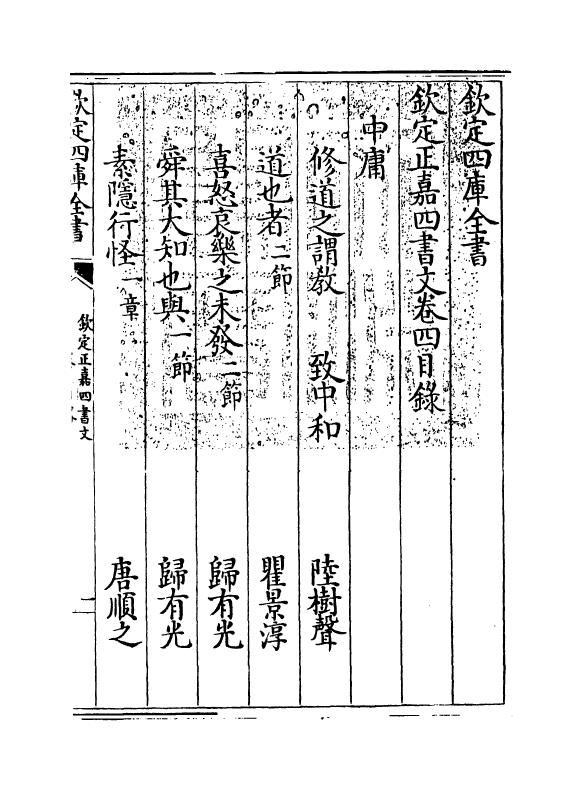 欽定四庫全書
欽定正嘉四書文卷四目錄
中庸
修道之謂教　致中和　陸樹聲
道也者二節　瞿景淳
喜怒哀樂之未發二節　歸有光
舜其大知也與一節　歸有光
素隱行怪一章　唐順之
欽定四庫全書
欽定正嘉四書文